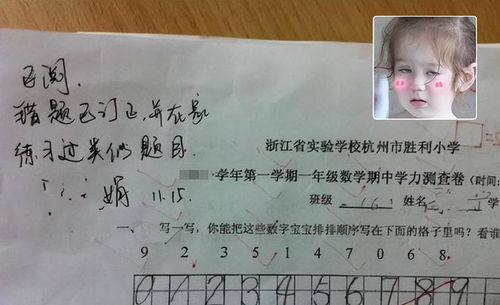 已阅.
错题已订正,并在家
练习过类似题目.
娟 11.15.
浙江省实验学校杭州市胜利小学
学年第一学期一年级数学期中学力测查卷(时间:
班级 (6) 姓名 学
一、 写一写,你能把这些数字宝宝排排顺序写在下面的格子里吗?看谁
9 2 3 5 1 4 7 0 6 8
0 1 2 3 4 5 6 7 8 9